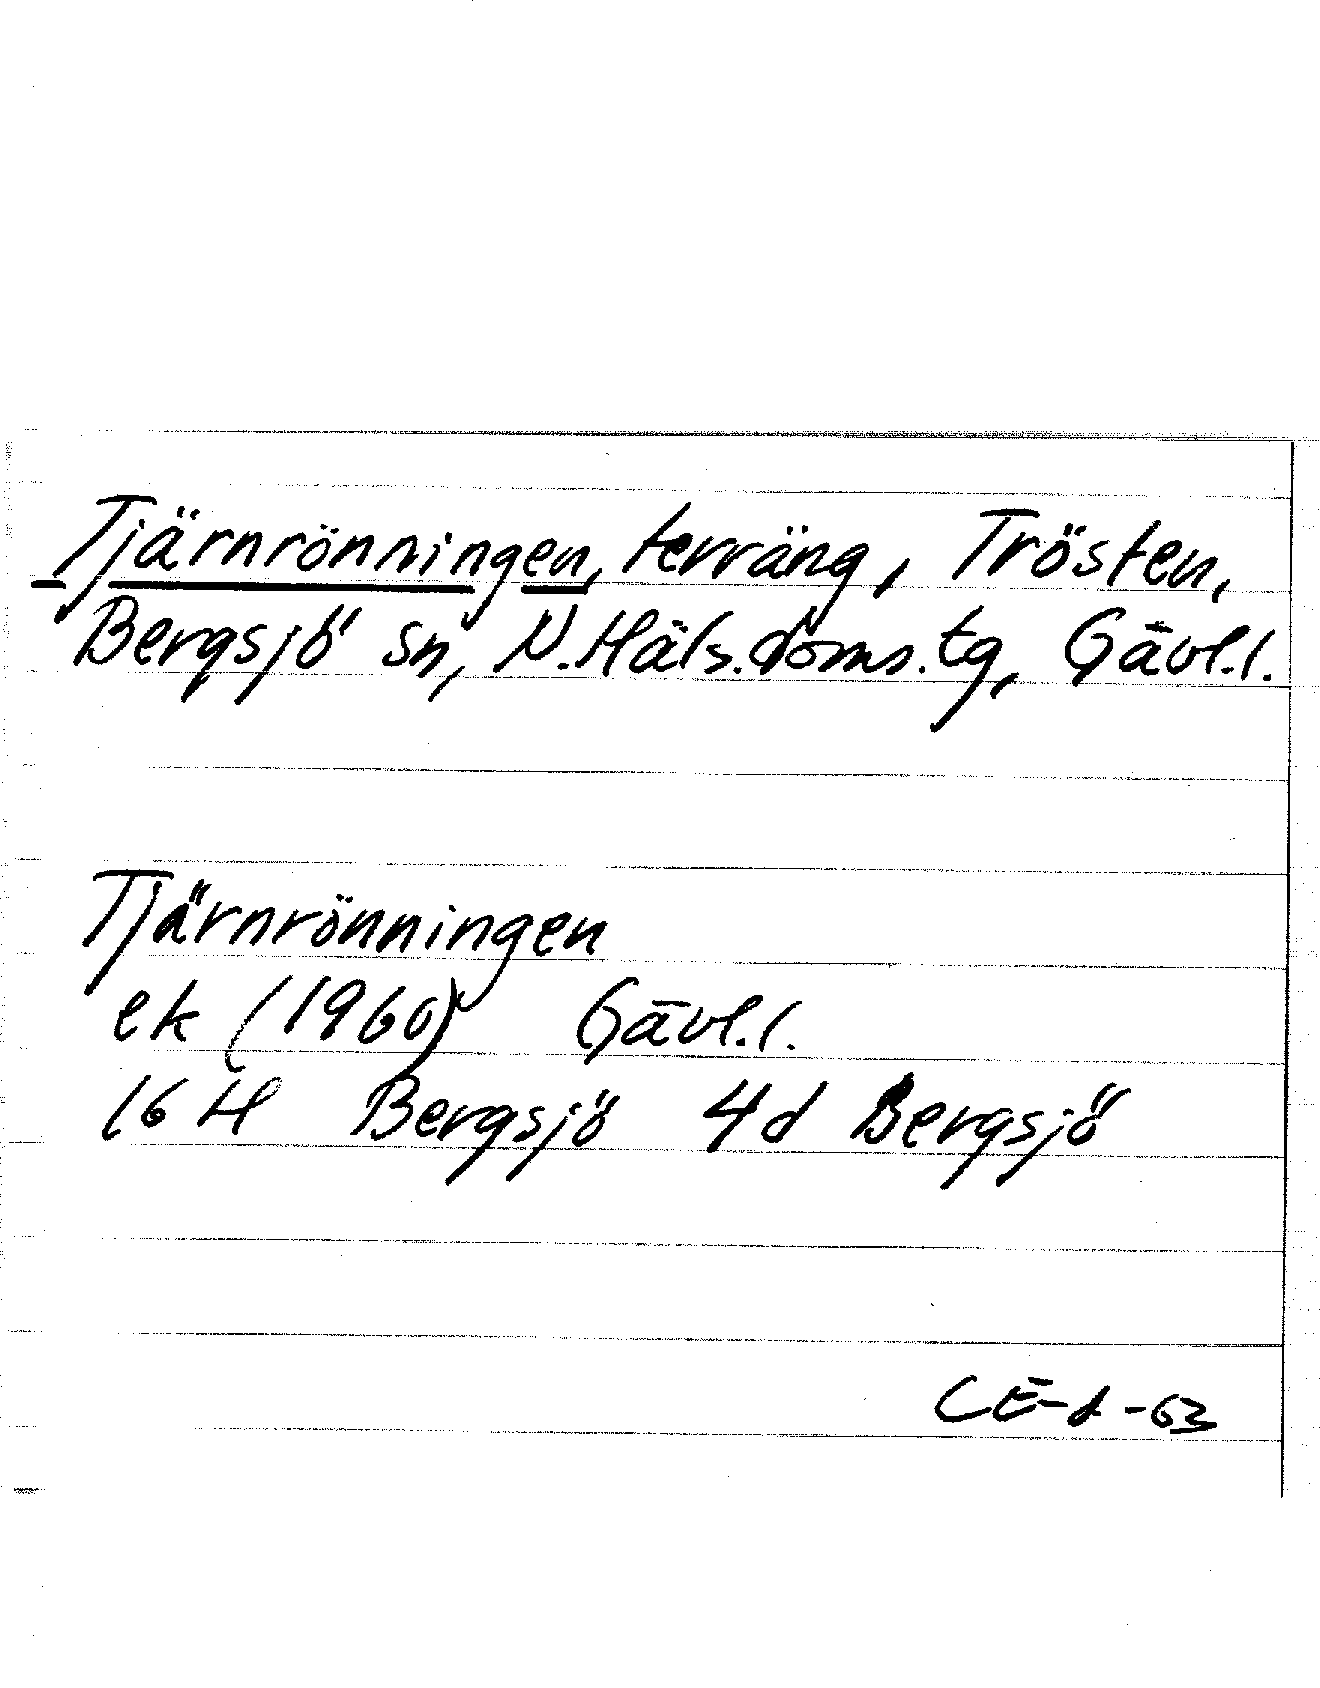 Tjärnrönningen, terräng, Trösten,
Bergsjö sn, N.Häls.doms.tg, Gävl.l.
Tjärnrönningen
ek (1960) Gävl.l.
16 H Bergsjö 4d Bergsjö
CE-d-63